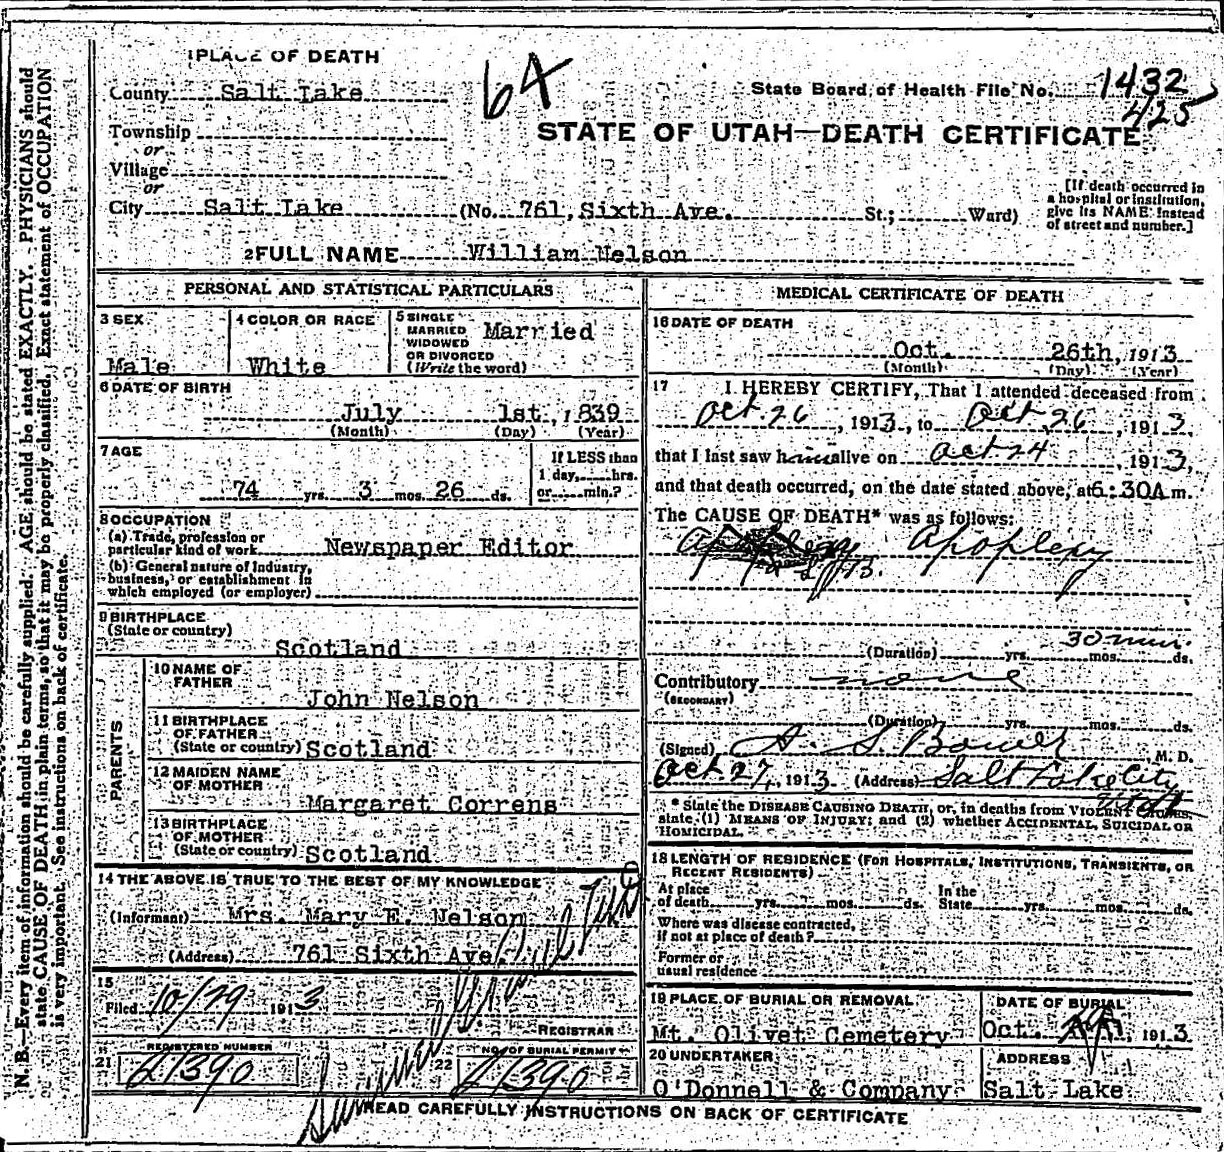 N. B.—Every item of information should be carefully supplied. AGE should be stated EXACTLY. PHYSICIANS should
state CAUSE OF DEATH in plain terms, so that it may be properly classified. Exact statement of OCCUPATION
is very important. See instructions on back of certificate.
1 PLACE OF DEATH
County Salt Lake
64
State Board of Health File No. 1432
425
STATE OF UTAH—DEATH CERTIFICATE
Township
or
Village
or
City Salt Lake (No. 761, Sixth Ave. St.; Ward)
[If death occurred in
a hospital or institution,
give its NAME instead
of street and number.]
2 FULL NAME William Nelson
PERSONAL AND STATISTICAL PARTICULARS
3 SEX
Male
4 COLOR OR RACE
White
5 SINGLE
MARRIED
WIDOWED
OR DIVORCED
(Write the word)
Married
6 DATE OF BIRTH
July 1st, 1839
(Month) (Day) (Year)
7 AGE
74 yrs. 3 mos. 26 ds.
If LESS than
1 day, hrs.
or min.?
8 OCCUPATION
(a) Trade, profession or
particular kind of work Newspaper Editor
(b) General nature of Industry,
business, or establishment in
which employed (or employer)
9 BIRTHPLACE
(State or country)
Scotland
PARENTS
10 NAME OF
FATHER
John Nelson
11 BIRTHPLACE
OF FATHER
(State or country) Scotland
12 MAIDEN NAME
OF MOTHER
Margaret Correns
13 BIRTHPLACE
OF MOTHER
(State or country) Scotland
14 THE ABOVE IS TRUE TO THE BEST OF MY KNOWLEDGE
(Informant) Mrs. Mary E. Nelson
(Address) 761 Sixth Ave.
15
Filed 10/29 1913
REGISTRAR
21 REGISTERED NUMBER
21390
22 NO. OF BURIAL PERMIT
21390
MEDICAL CERTIFICATE OF DEATH
16 DATE OF DEATH
Oct. 26th, 1913
(Month) (Day) (Year)
17 I HEREBY CERTIFY, That I attended deceased from
Oct. 26, 1913, to Oct 26, 1913,
that I last saw him alive on Oct 24, 1913,
and that death occurred, on the date stated above, at 6:30A m.
The CAUSE OF DEATH* was as follows:
Apoplexy
30 min.
(Duration) yrs. mos. ds.
Contributory none
(SECONDARY)
(Duration) yrs. mos. ds.
(Signed) A S. Bower, M. D.
Oct 27, 1913 (Address) Salt Lake City
Utah
* State the DISEASE CAUSING DEATH, or, in deaths from VIOLENT CAUSES,
state (1) MEANS OF INJURY; and (2) whether ACCIDENTAL, SUICIDAL OR
HOMICIDAL.
18 LENGTH OF RESIDENCE (FOR HOSPITALS, INSTITUTIONS, TRANSIENTS, OR
RECENT RESIDENTS)
At place
of death yrs. mos. ds.
In the
State yrs. mos. ds.
Where was disease contracted,
if not at place of death?
Former or
usual residence
19 PLACE OF BURIAL OR REMOVAL
Mt. Olivet Cemetery
DATE OF BURIAL
Oct. 1913
20 UNDERTAKER
O'Donnell & Company
ADDRESS
Salt Lake
READ CAREFULLY INSTRUCTIONS ON BACK OF CERTIFICATE